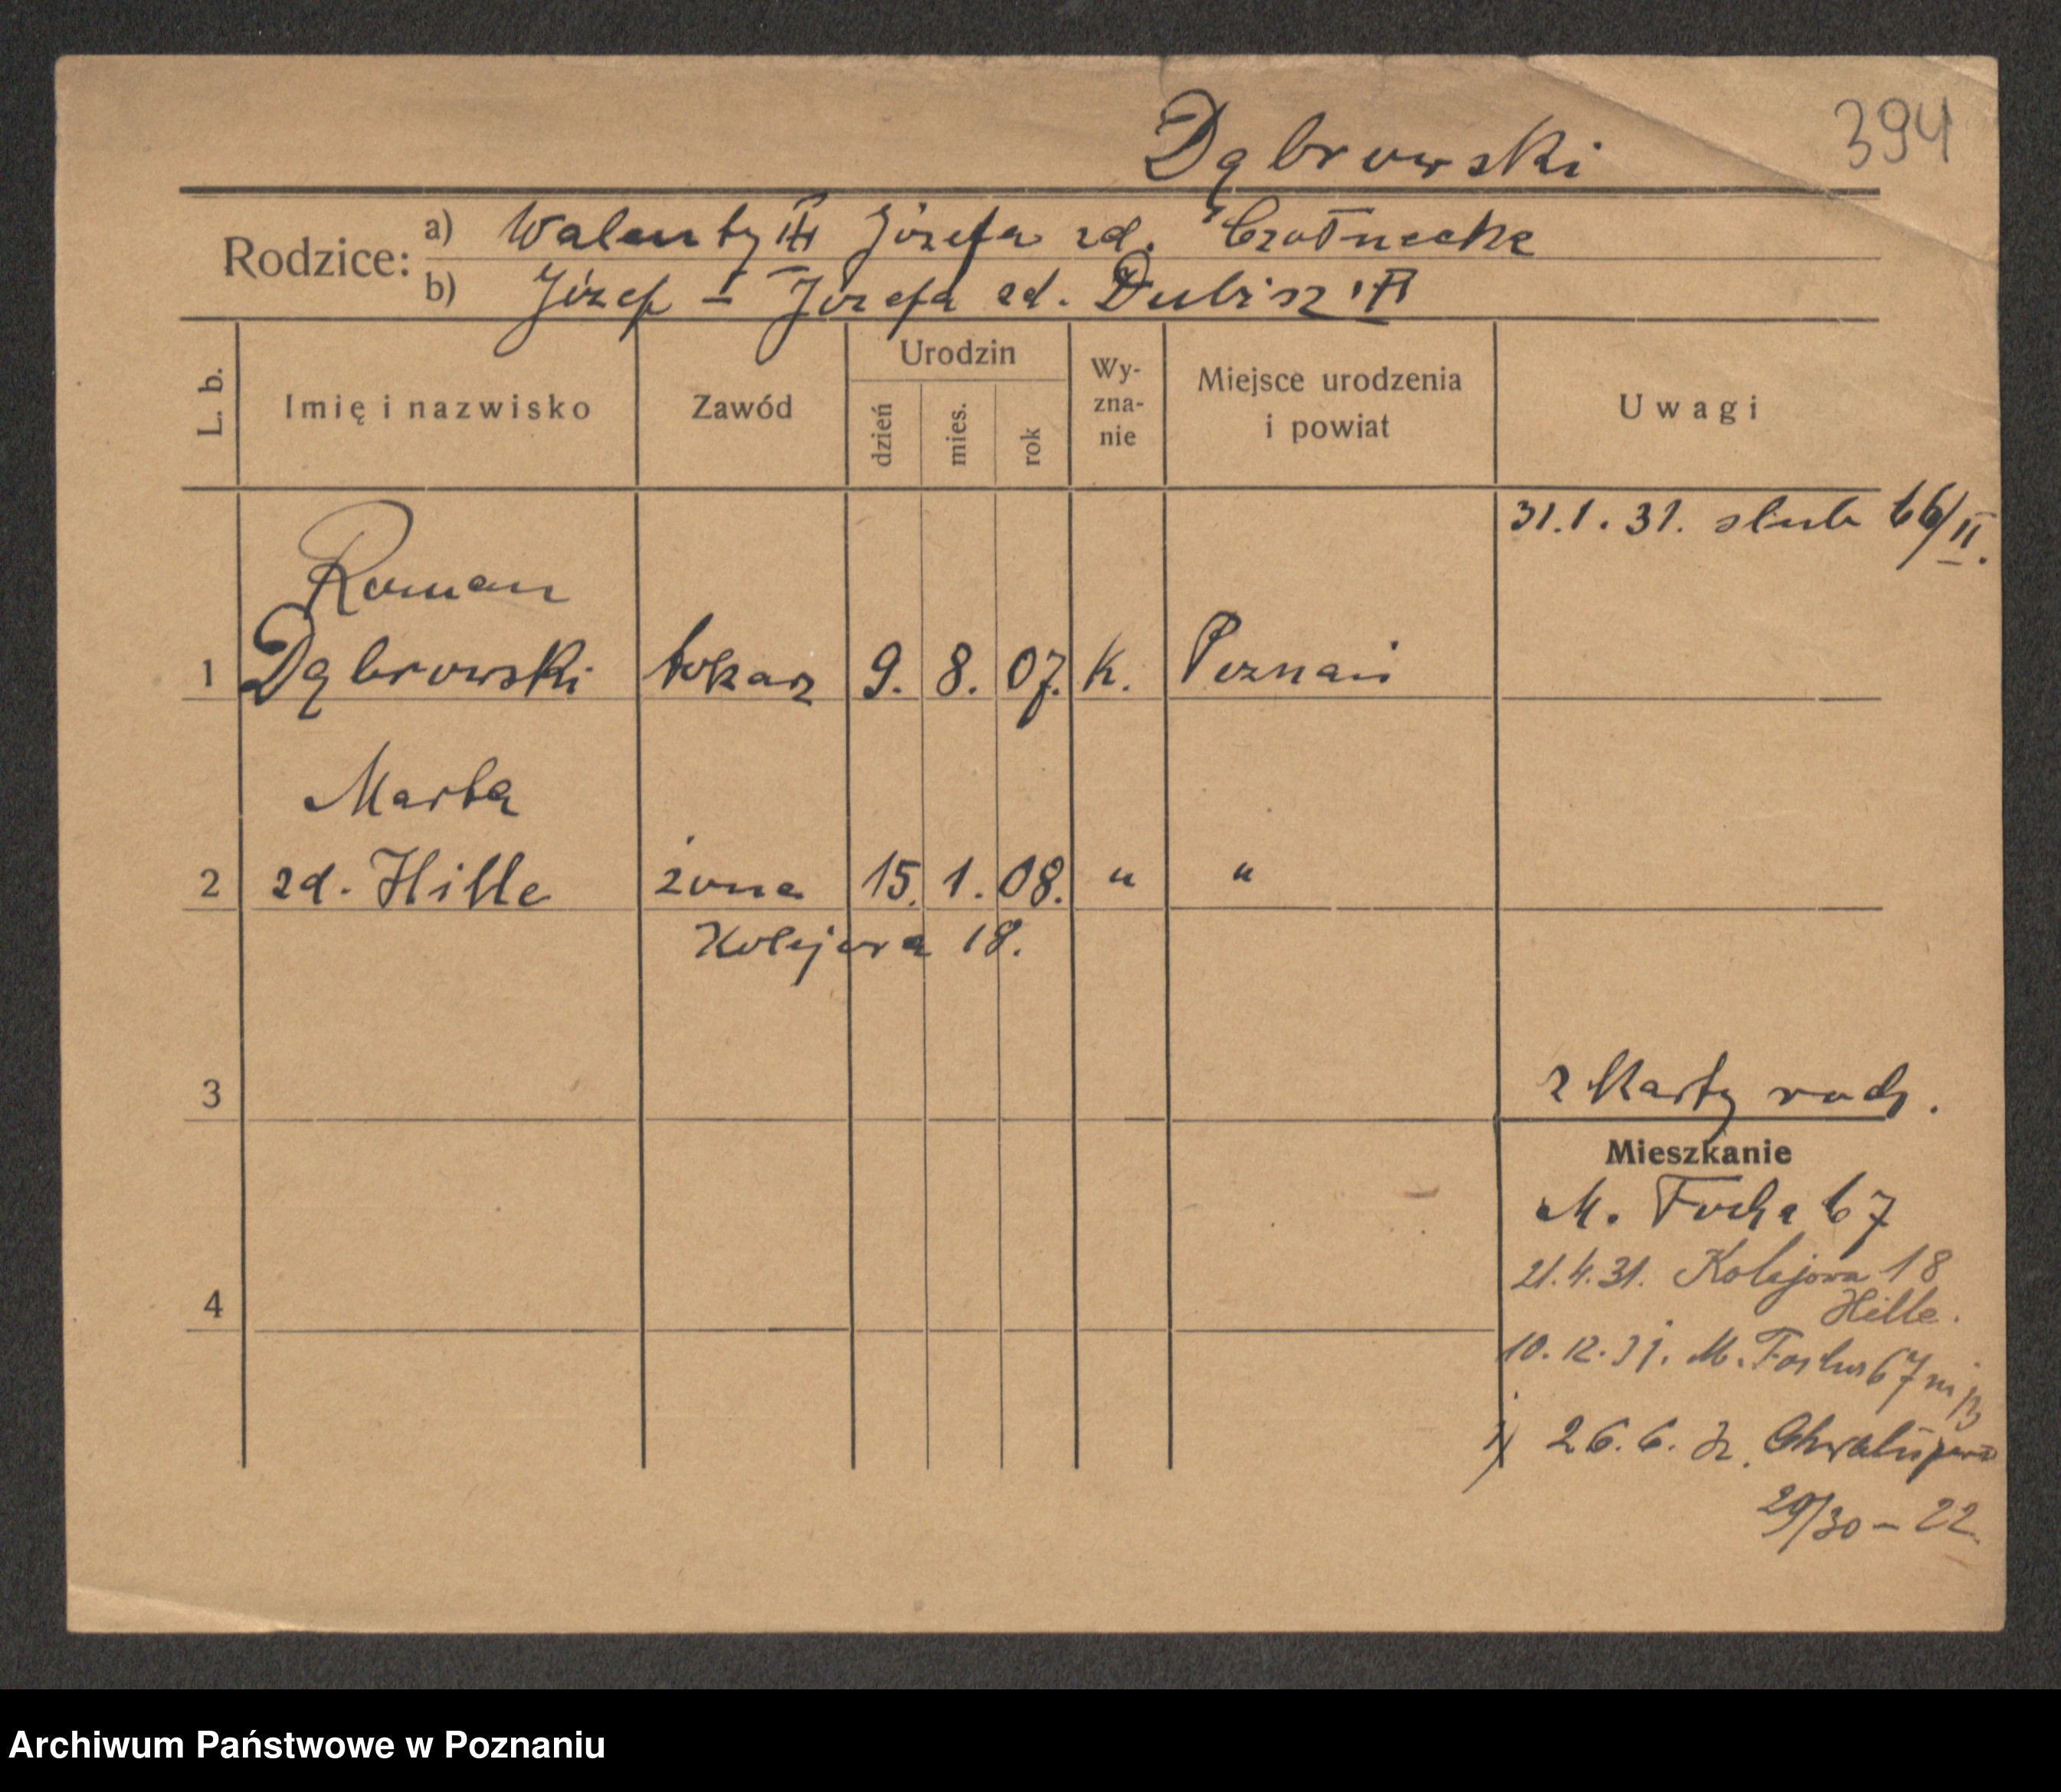 Dąbrowski 394
Rodzice: a) Walenty Józefa zd. Czołnecka
b) Józef – Józefa zd. Dubisz
L. b. Imię i nazwisko Zawód Urodzin dzień mies. rok Wy-zna-nie Miejsce urodzenia i powiat Uwagi
31.1.31. slub 66/II.
Roman
1 Dąbrowski tokarz 9. 8. 07. K. Poznań
Marta
2 zd. Hille żona 15. 1. 08. " "
Kolejowa 18.
3 z karty rodz.
Mieszkanie
M. Focha 67
21.4.31. Kolejowa 18
Hille.
4
10.12.31. M. Focha 67
26.6.
29/30 – 22
Archiwum Państwowe w Poznaniu